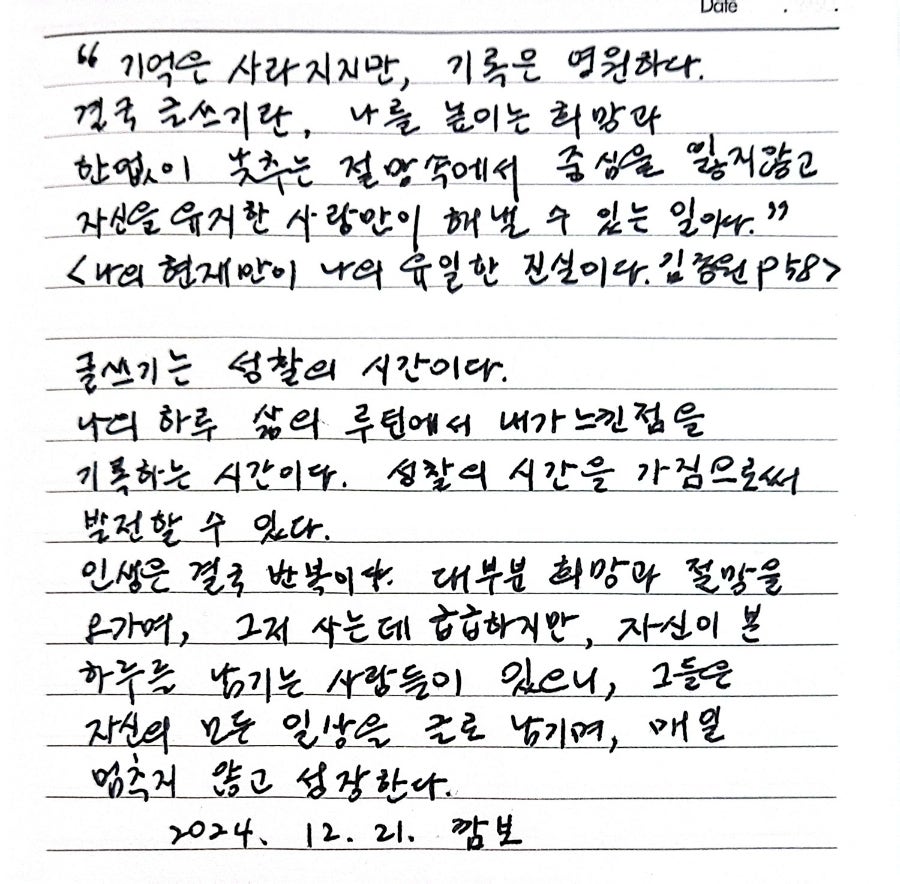 Date . .
“ 기억은 사라지지만, 기록은 영원하다.
결국 글쓰기란, 나를 높이는 희망과
한없이 낮추는 절망속에서 중심을 잃지않고
자신을 유지한 사람만이 해낼 수 있는 일이다.”
<나의 현재만이 나의 유일한 진실이다. 김종원 p58>
글쓰기는 성찰의 시간이다.
나의 하루 삶의 루틴에서 내가 느낀점을
기록하는 시간이다. 성찰의 시간을 가짐으로써
발전할 수 있다.
인생은 결국 반복이다. 대부분 희망과 절망을
오가며, 그저 사는데 급급하지만, 자신이 본
하루를 남기는 사람들이 있으니, 그들은
자신의 모든 일상을 글로 남기며, 매일
멈추지 않고 성장한다.
2024. 12. 21. 깜보